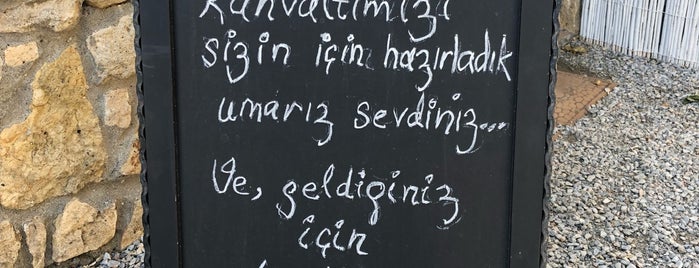 Kahvaltımızı
sizin için hazırladık
umarız sevdiniz...
Ve, geldiginiz
için